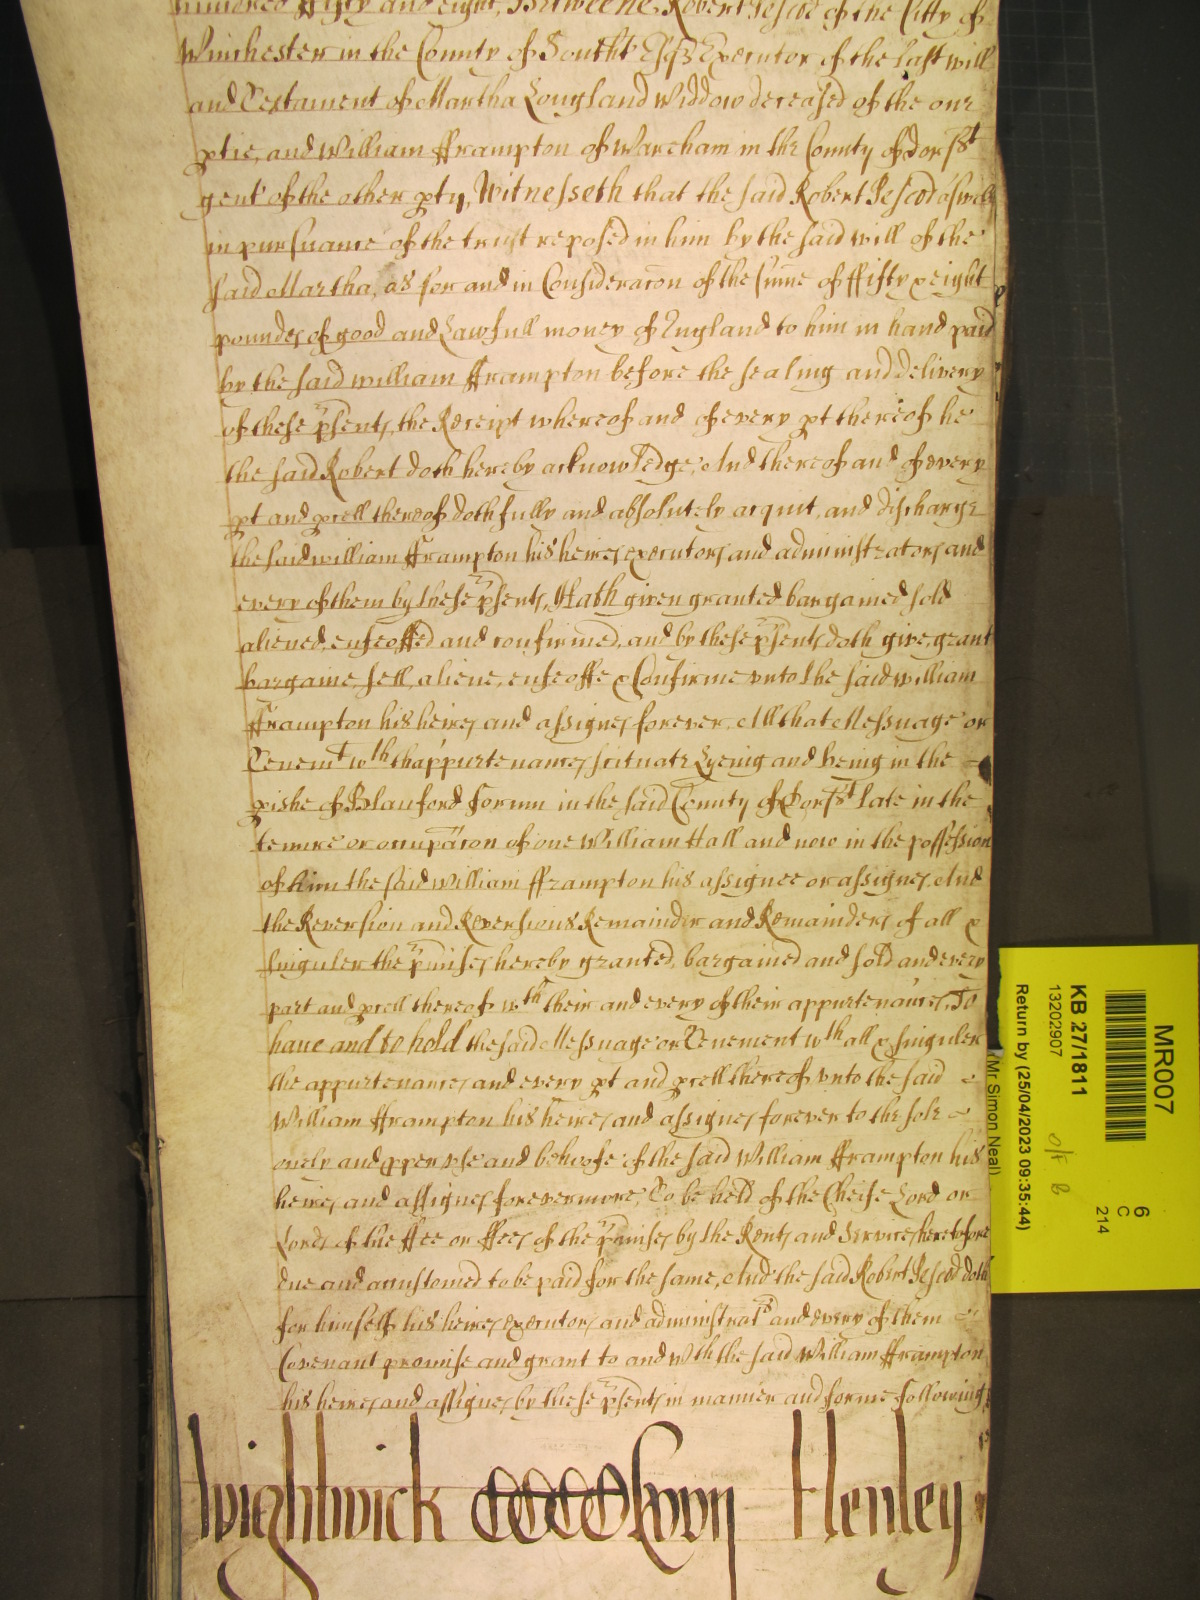 hundred ffifty and eight, Betweene Robert Pescod of the Citty of
Winchester in the County of Southt Esqr Executor of the last will
and Testament of Martha Longland Widdow deceased of the one
ptie, and William fframpton of Wareham in the County of Dorsst
gent of the other pty, Witnesseth that the said Robert Pescod aswell
in pursuance of the trust reposed in him by the said will of the
said Martha, as for and in Consideracon of the sume of ffifty & eight
poundes of good and Lawfull money of England to him in hand paid
by the said william fframpton before the sealing and delivery
of these psents, the Receipt whereof and of every pt thereof he
the said Robert doth hereby acknowledge, And thereof and of every
pt and pcell thereof doth fully and absolutely acquit, and discharge
the said william fframpton his heires, executors and administrators and
every of them by these psents, Hath given granted bargained sold
aliened, enfeoffed and confirmed, and by these psents doth give, grant
bargaine, sell, aliene, enfeoffe & Confirme unto the said William
fframpton his heires and assignes forever, All that Messuage or
Tenemt wth thappurtenances scituate Lyeing and being in the
pishe of Blanford forum in the said County of Dorsst late in the
tenure or occupacon of one William Hall and now in the possession
of him the said William fframpton his assignee or assignes, And
the Reversion and Reversions Remainder and Remainders of all &
singuler the pmises hereby granted, bargained and sold and every
part and pcell thereof wth their and every of their appurtenances, To
have and to hold the said Messuage or Tenement wth all & singuler
the appurtenances and every pt and pcell thereof unto the said
William fframpton his heires and assignes forever to the sole
onely and pper use and behoofe of the said William fframpton his
heires and assignes forevermore, To be held of the Cheife Lord or
Lords of the ffee or ffees of the pmises by the Rents and Services heretofore
due and accustomed to be paid for the same, And the said Robert Pescod doth
for himselfe his heires, executors and administrators and every of them
Covenant promise and grant to and wth the said William fframpton
his heires and assignes by these psents in manner and forme following
Wightwick CCCCCxvij Henley
MR007
KB 27/1811
13202907
Return by (25/04/2023 09:35:44)
(Mr Simon Neal)
6
C
214